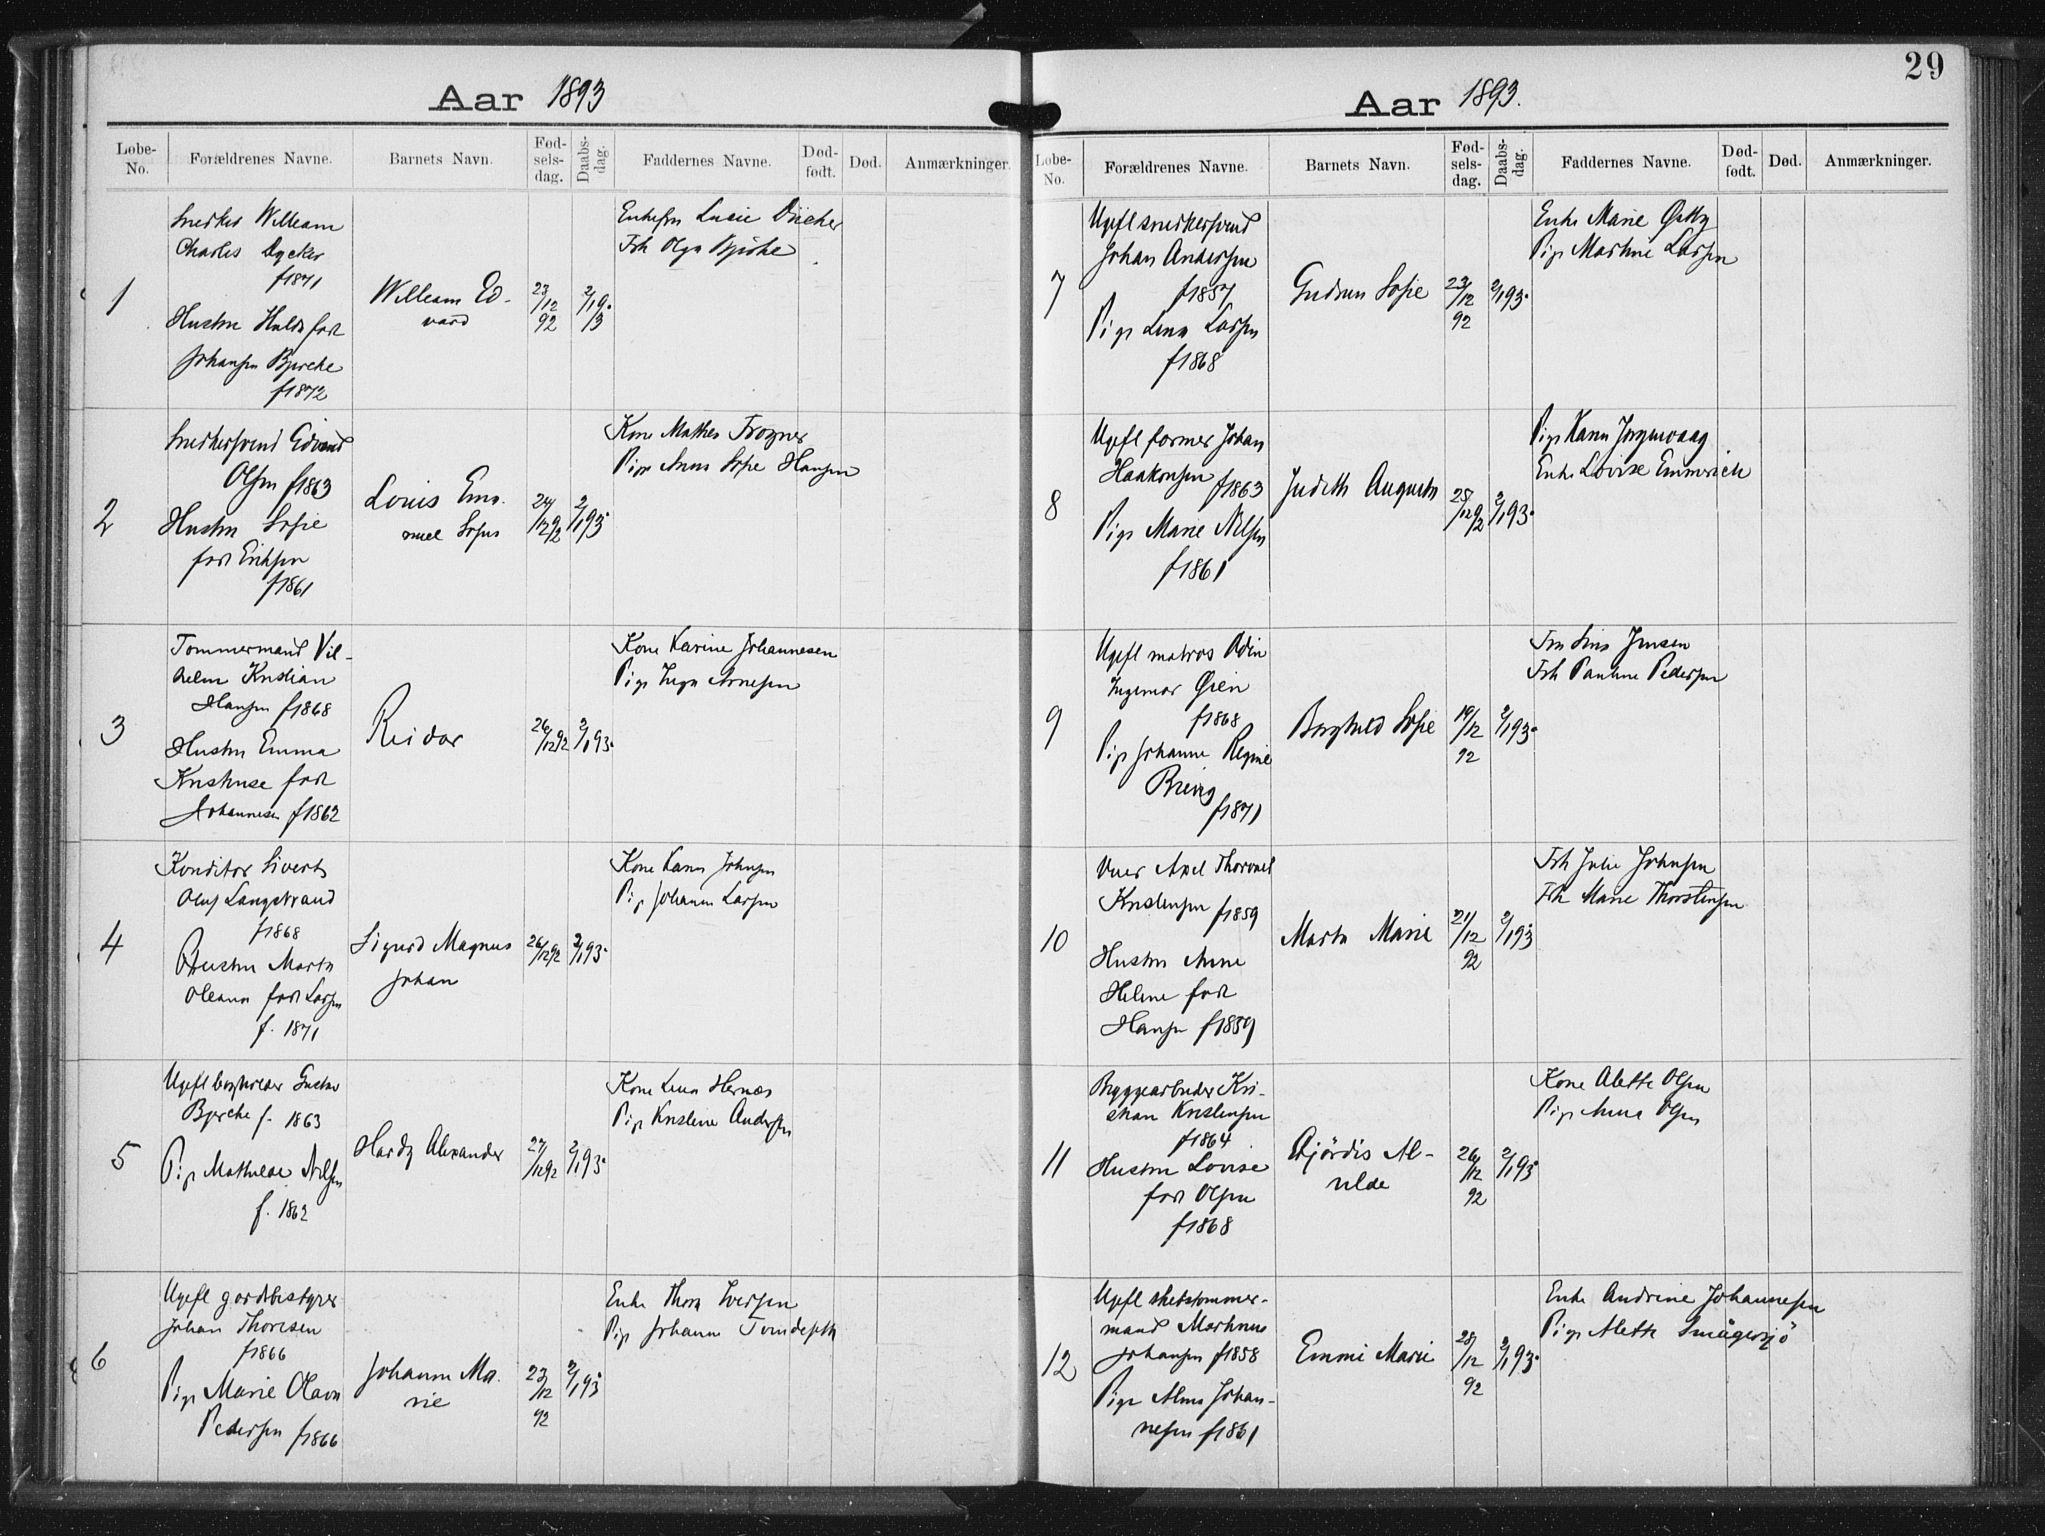 Aar 1893
Løbe-No.
Forældrenes Navne.
Barnets Navn.
Fødselsdag.
Daabsdag.
Faddernes Navne.
Dødfødt.
Død.
Anmærkninger.
1
Snedker William
Charles Dycker
f1871
Hustru Hulda født
Johansen Bjerche
f1872
William Ed-
vard
23/12 92
2/1 93
Enkefru Lucie Dücker
Frk Olga Bjerke
2
Snedkersvend Edvard
Olsen f1863
Hustru Sofie
født Eriksen
f1861
Louis Ema-
nuel Sofus
24/12 92
2/1 93
Kone Mathea Trogner
Pige Anna Sofie Hansen
3
Tommermand Vil-
helm Kristian
Hansen f1868
Hustru Emma
Kristense født
Johannesen f1862
Reidar
26/12 92
2/1 93
Kone Karine Johannesen
Pige Inga Arnesen
4
Konditor Sivert
Oluf Langstrand
f1868
Hustru Marta
Oleana født Larsen
f. 1871
Sigurd Magnus
Johan
26/12 92
2/1 93
Kone Johnsen
Pige Johanne Larsen
5
Ugeft Gustav
Bjerche f. 1863
Pige Mathilde Nilsen
f. 1862
Hardy Alexander
27/12 92
2/1 93
Kone Lina Hernæs
Pige Kristine Andersen
6
Ugeft gardsbestyrer
Johan Thoresen
f1866
Pige Marie Olava
Pedersen f1866
Johanne Ma-
rie
23/12 92
2/1 93
Enke Thora Iversen
Pige Johanne
29
Aar 1893.
Løbe-No.
Forældrenes Navne.
Barnets Navn.
Fødselsdag.
Daabsdag.
Faddernes Navne.
Dødfødt.
Død.
Anmærkninger.
7
Ugeft snedkersvend
Johan Andersen
f1857
Pige Lina Larsen
f1868
Gudrun Sofie
23/12 92
2/1 93
Enke Marie
Pige Martine Larsen
8
Ugeft former Johan
Haakonsen f1863
Pige Marie Nilsen
f1861
Judith Augusta
25/12 92
2/1 93
Pige Karen
Enke Lovise Emmerich
9
Ugeft matros Odin
Ingemar Øien
f1868
Pige Johanne Regine
f1871
Borghild Sofie
19/12 92
2/1 93
Fru Jensen
Frk Pauline Pedersen
10
Axel Thorvald
Kristensen f1859
Hustru Anne
Helene født
Hansen f1859
Marta Marie
21/12 92
2/1 93
Frk Julie Johnsen
Frk Marie Thorstensen
11
Byggearbeider Kri-
stian Kristensen
f1864
Hustru Lovise
født Olsen
f1868
Hjørdis Al-
vilde
26/12 92
2/1 93
Kone Alette Olsen
Pige Anna Olsen
12
Ugeft skibstommer-
mand Martinus
Johansen f1858
Pige Alma Johan-
nesen f1861
Emmi Marie
28/12 92
2/1 93
Enke Andrine Johannesen
Pige Alette Smågesjö